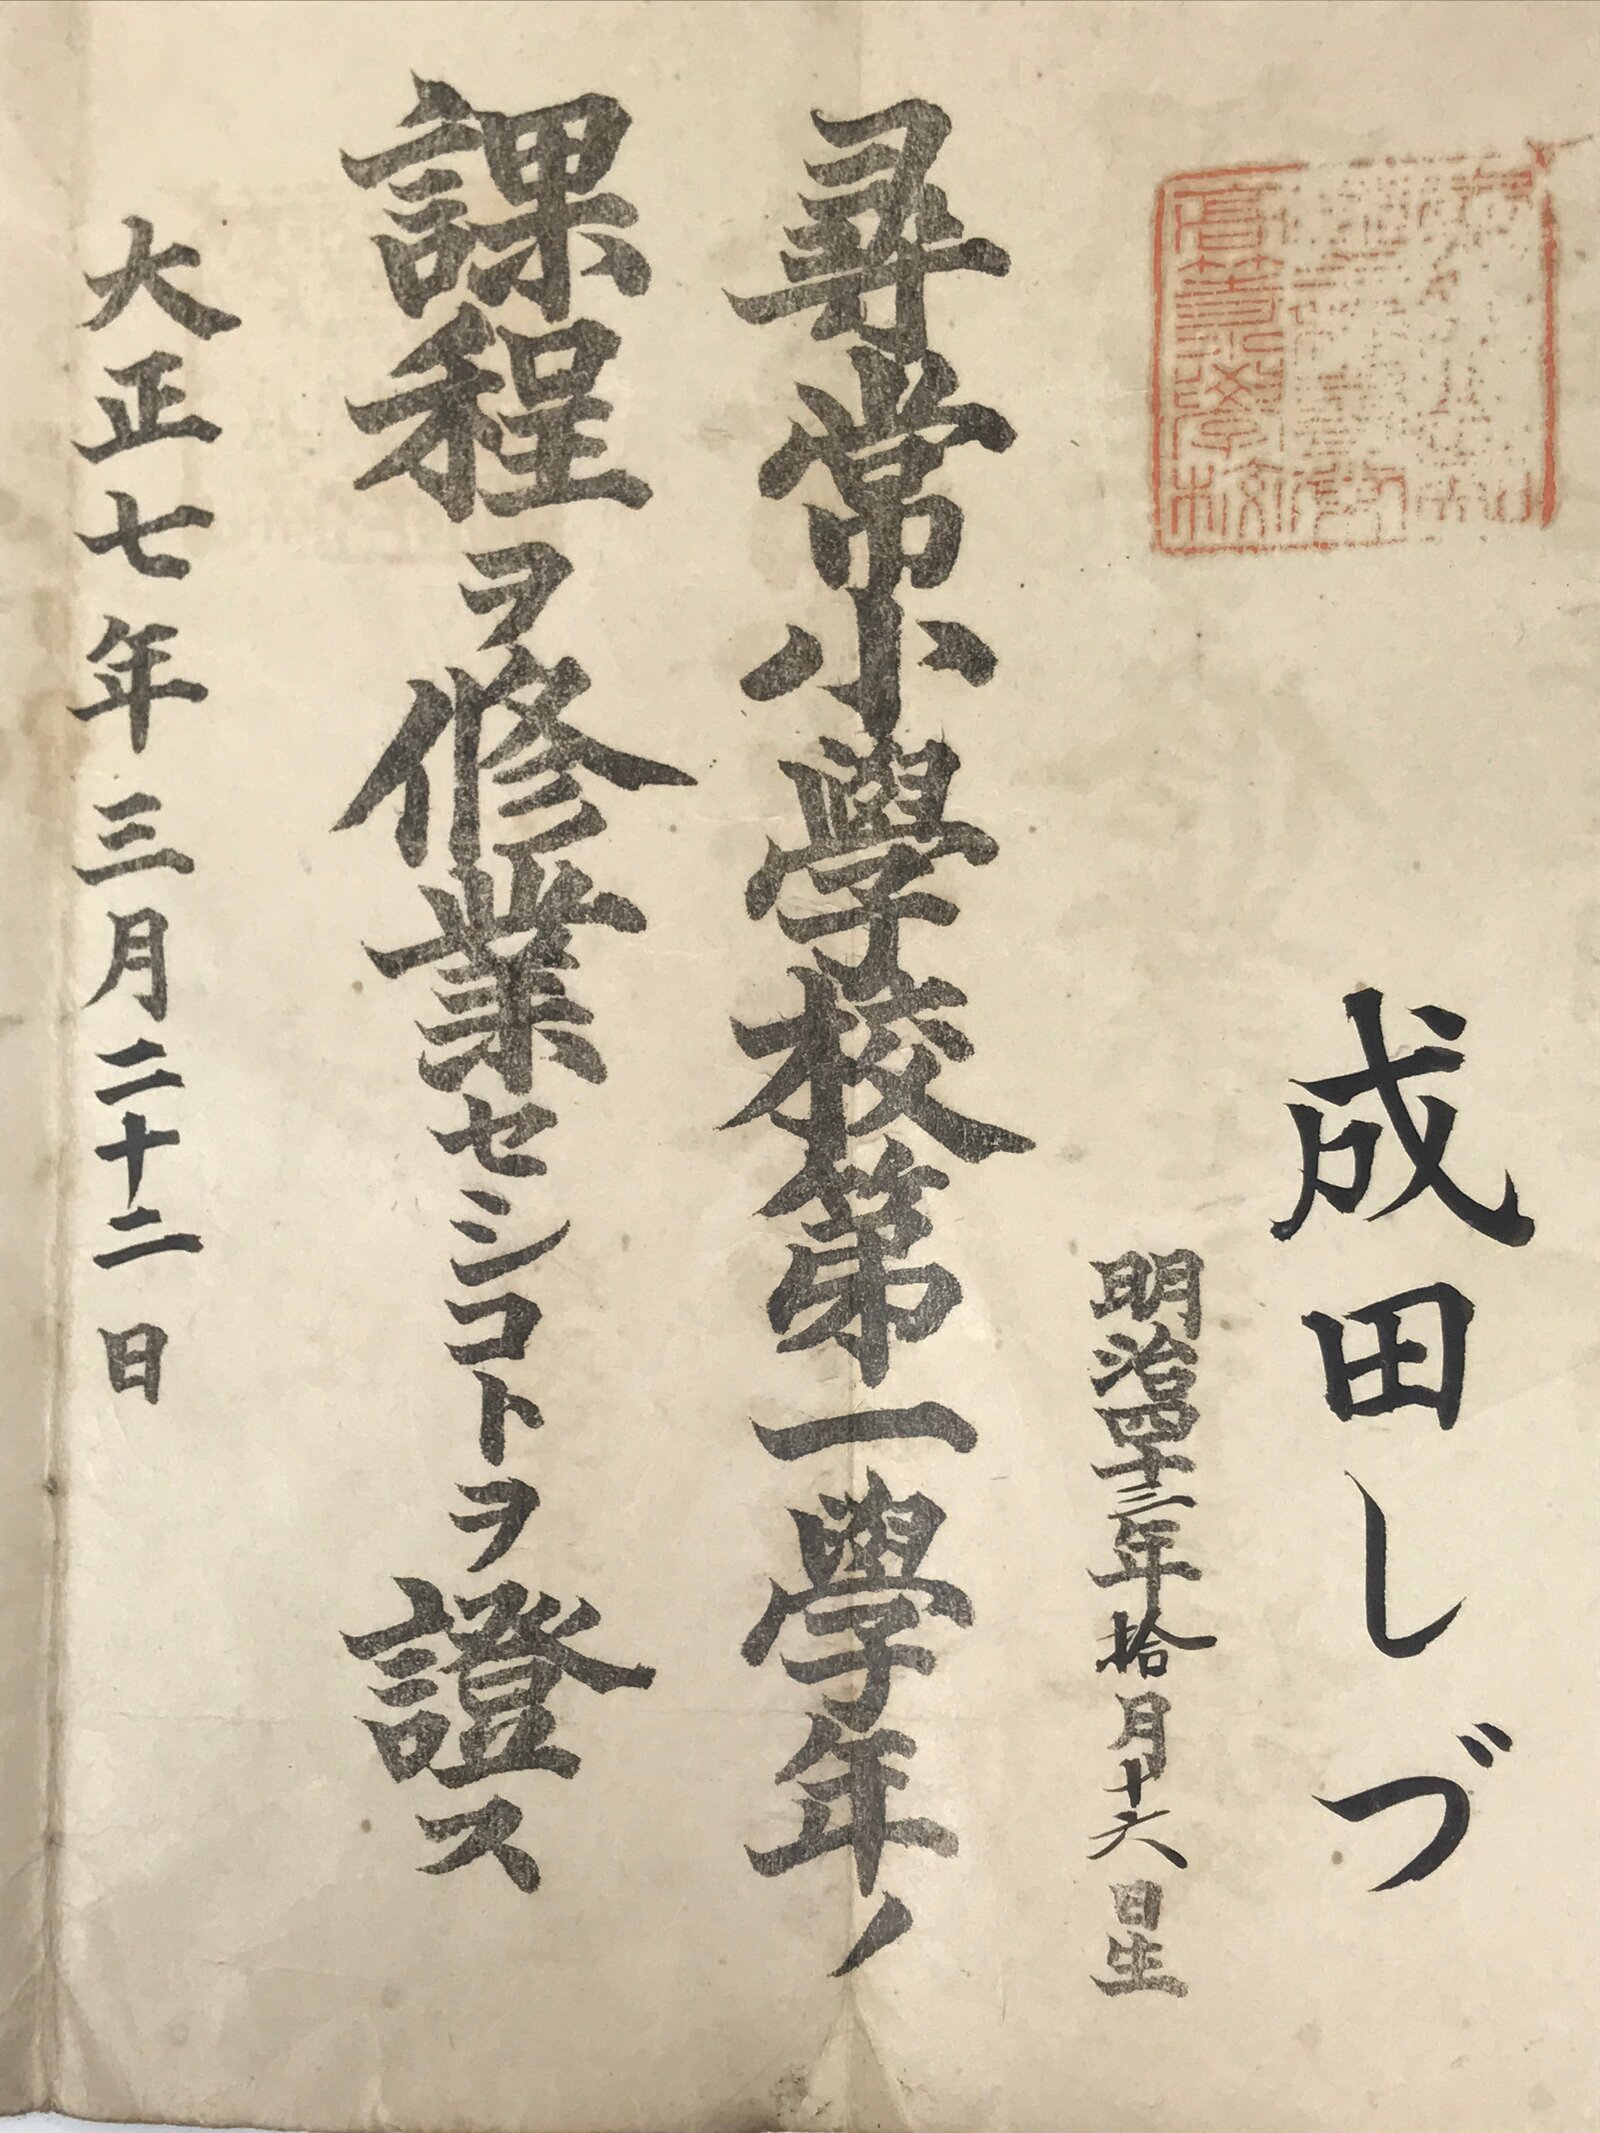 成田しづ
明治四十三年拾月十六日生
尋常小學校第一學年ノ
課程ヲ修業セシコトヲ證ス
大正七年三月二十二日